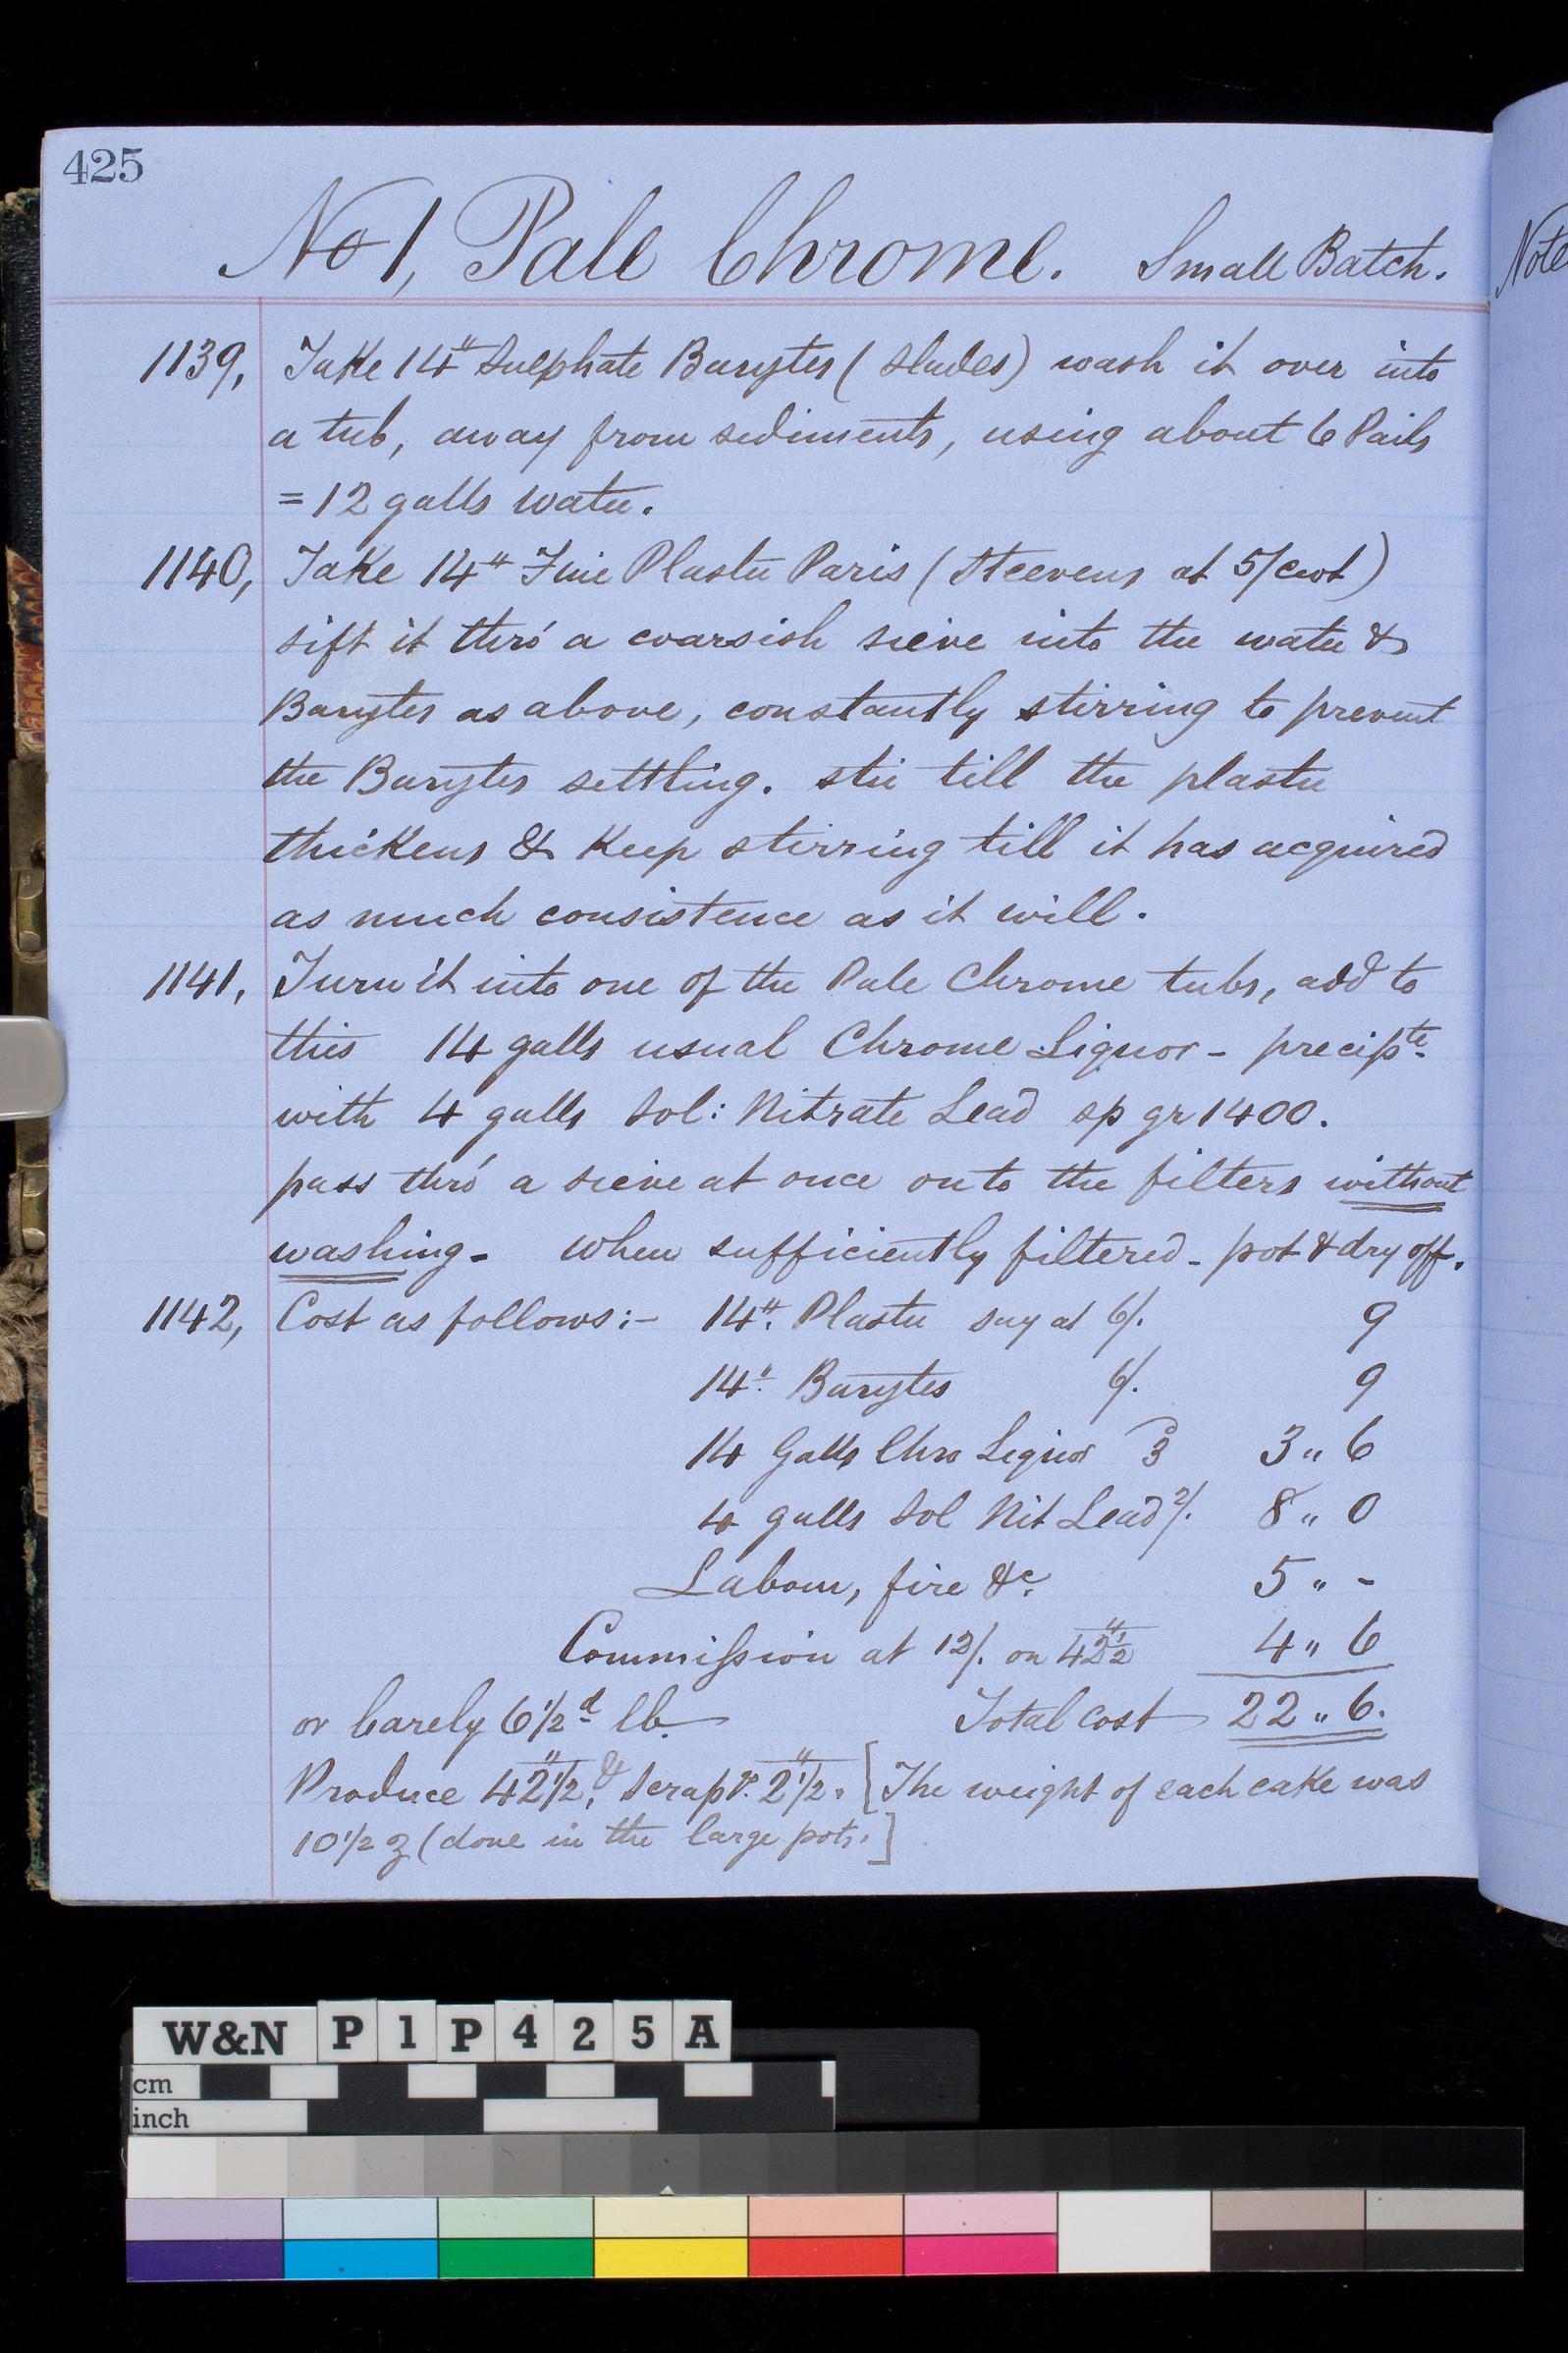 425
No 1, Pale Chrome. Small Batch.
Note
1139, Take 14" Sulphate Barytes (Slades) wash it over into
a tub, away from sediments, using about 6 Pails
= 12 galls water.
1140, Take 14" Fine Plaster Paris (Steevens at 5/cwt)
sift it thro' a coarsish sieve into the water &
Barytes as above, constantly stirring to prevent
the Barytes settling. stir till the plaster
thickens & keep stirring till it has acquired
as much consistence as it will.
1141, Turn it into one of the Pale Chrome tubs, add to
this 14 galls usual Chrome Liquor - precipte.
with 4 galls Sol: Nitrate Lead sp gr 1400.
pass thro' a sieve at once onto the filters without
washing - when sufficiently filtered - pot & dry off.
1142, Cost as follows:- 14" Plaster say at 6/. 9
14" Barytes 6/. 9
14 Galls Chro Liquor 3 3 " 6
4 galls Sol Nit Lead 2/. 8 " 0
Labour, fire &c. 5 " -
Commission at 12/. on 42½" 4 " 6
or barely 6½d lb. Total cost 22 " 6.
Produce 42½", & Scraps 2½". [The weight of each cake was
10½ z (done in the large pots.]
W&N P1P425A
cm
inch